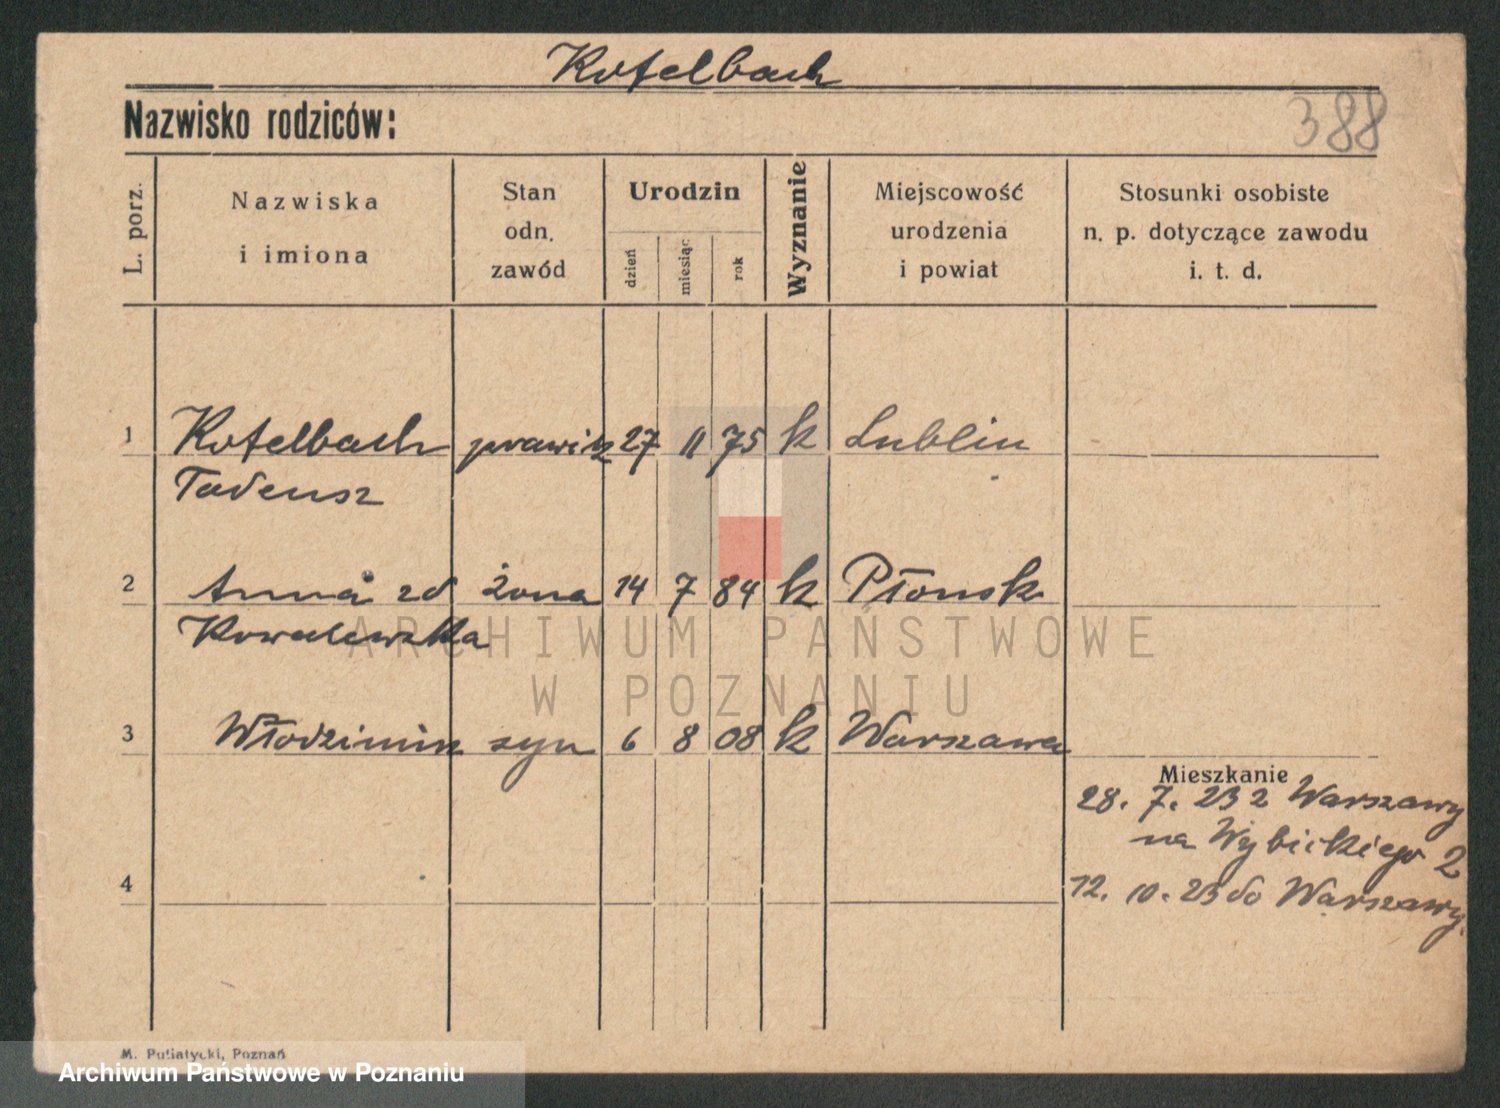 Kotelbach
Nazwisko rodziców:
388
L. porz.
Nazwiska
i imiona
Stan
odn.
zawód
Urodzin
dzień
miesiąc
rok
Wyznanie
Miejscowość
urodzenia
i powiat
Stosunki osobiste
n. p. dotyczące zawodu
i. t. d.
1 Kotelbach 27 11 75 k Lublin
Tadeusz
2 Anna zd żona 14 7 84 k Płonsk
Kowalewska
ARCHIWUM PAŃSTWOWE
W POZNANIU
3 Włodzimirz syn 6 8 08 k Warszawa
Mieszkanie
28. 7. 23 z Warszawy
na Wybickiego 2
4
12. 10. 23 do Warszawy.
M. Putiatycki, Poznań
Archiwum Państwowe w Poznaniu